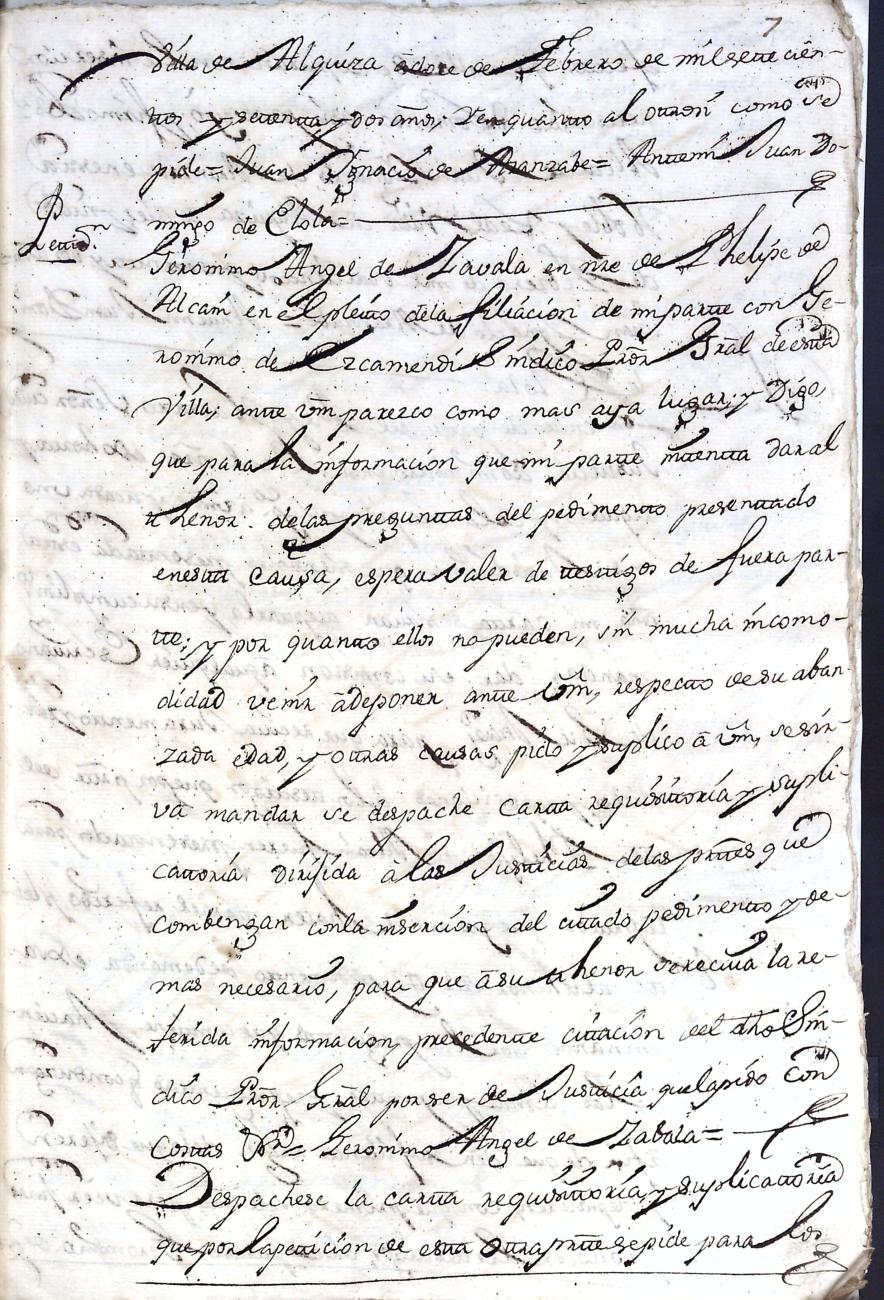 7
Villa de Alquiza a doce de Febrero de mil sette cien-
ttos y settentta y dos años; Y en quantto al ottrosi como se
pide= Juan Ignacio de Aranzabe= Antte mi Juan Do-
mingo de Elola=
Petizⁿ
Geronimo Angel de Zavala en nre de Phelipe de
Alcain en el pleitto de la filiacion de mi partte con Ge-
ronimo de Ezcamendi Sindico Pror Gral de estta
Villa; antte Vm parezco como mas aya lugar; y Digo,
que para la informacion que mi partte inttentta dar al
thenor de las pregunttas del pedimentto presenttado
en estta causa, espera valer de testtigos de fuera par-
tte; y por quantto ellos no pueden, sin mucha incomo-
didad venir a deponer antte Vm, respectto de su aban-
zada edad, y ottras causas pido y suplico a Vm, se sir-
va mandar se despache cartta requisittoria y supli-
cattoria dirijida a las Justicias de las prttes que
combengan con la insercion del cittado pedimentto y de-
mas necesario, para que a su thenor se reciva la re-
ferida informacion, precedentte cittacion del dho Sin-
dico Pror Gral por ser de Justicia que la pido con
costtas &ª= Geronimo Angel de Zabala=
Despachese la cartta requisittoria, y suplicattoria
que por la petticion de estta ottra prtte se pide para los